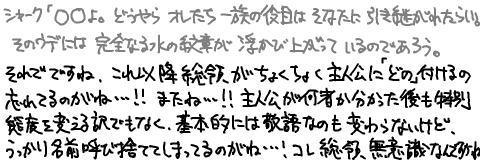 シャーク「〇〇よ。どうやら オレたち一族の役目は そなたに 引き継がれたらしい。
そのウデには 完全なる水の紋章が 浮かび上がって いるのであろう。
それでですね、これ以降総領がちょくちょく主人公に「どの」付けるの
忘れてるのがね…!! またね…!! 主人公が何者か分かった後も特別
態度を変える訳でもなく、基本的には敬語なのも変わらないけど、
うっかり名前呼び捨てしてしまってるのがね…! コレ総領、無意識なんだがね